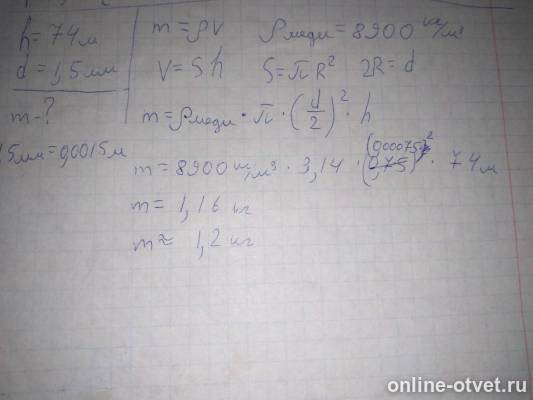 h = 74 м
d = 1,5 мм
m - ?
5мм = 0,0015 м
m = ρV ρ меди = 8900 кг/м³
V = Sh S = πR² 2R = d
m = ρ меди · π · (d/2)² · h
m = 8900 кг/м³ · 3,14 · (0,00075)² · 74 м
m = 1,16 кг
m ≈ 1,2 кг
online-otvet.ru